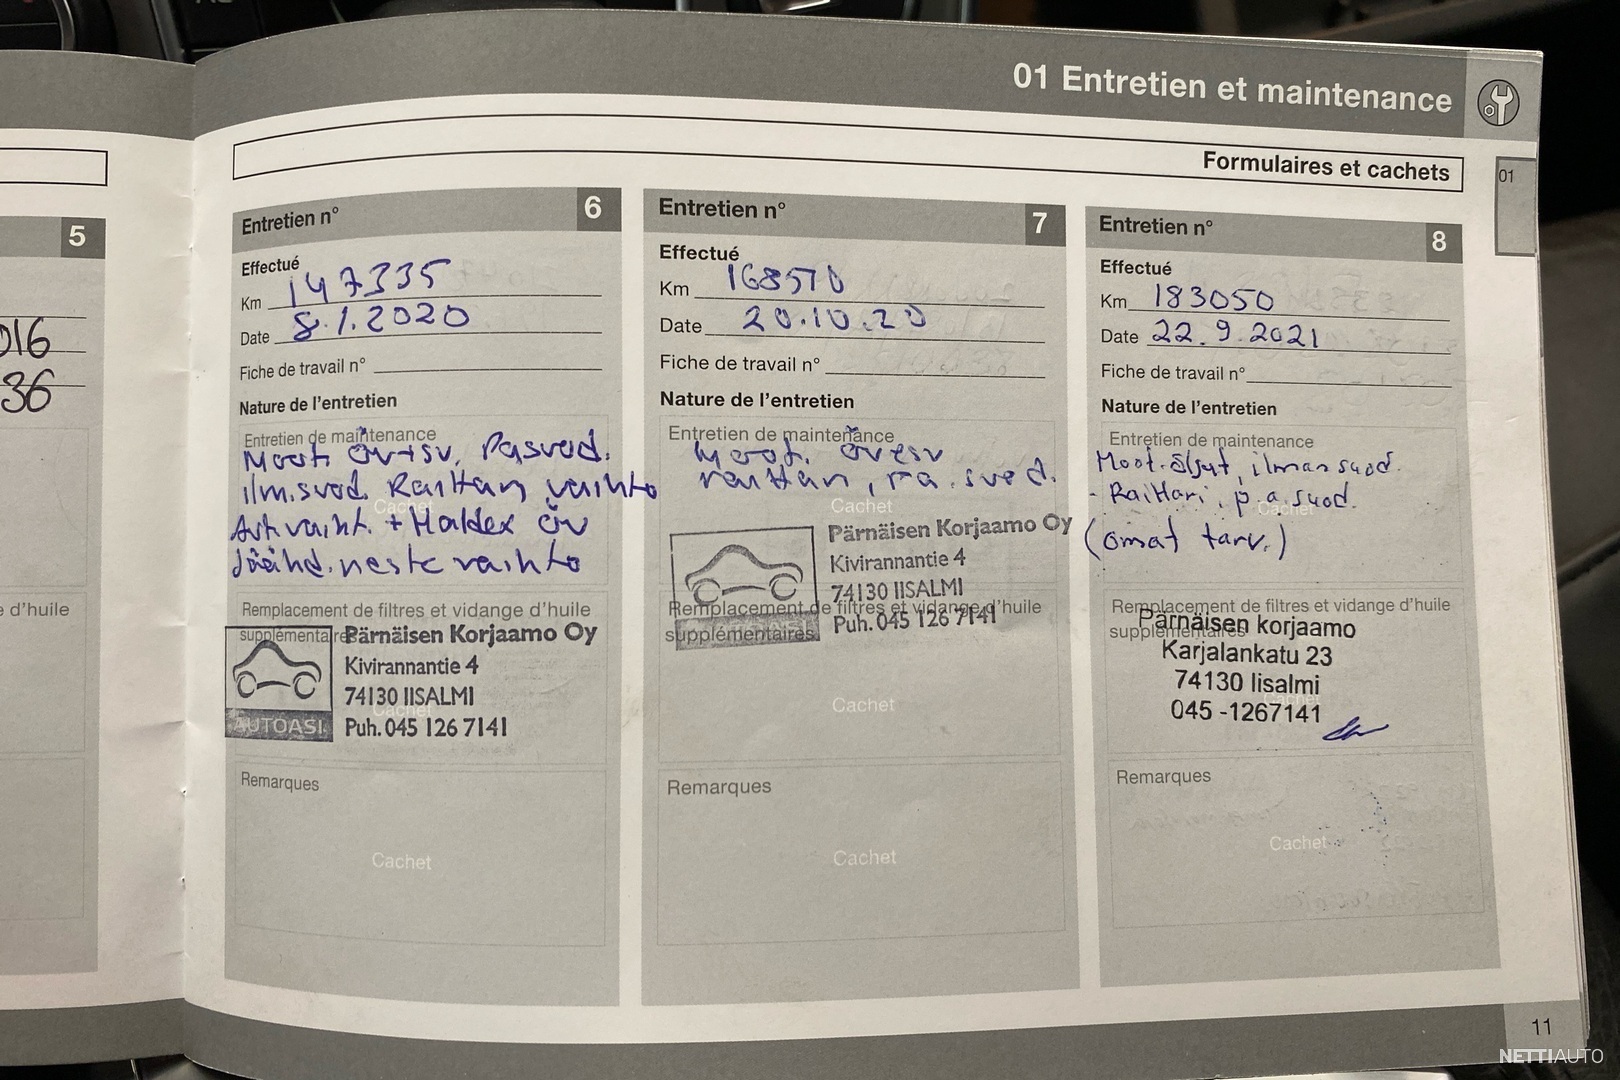 01 Entretien et maintenance
Formulaires et cachets
01
5
016
36
e d'huile
Entretien n° 6
Effectué
Km 147335
Date 8.1.2020
Fiche de travail n°
Nature de l'entretien
Entretien de maintenance
Moot. öv+sv, Ra.svod.
ilm.svod. Raittan vaihto
Cachet
vaiht. + Haldex öv
Jäähd. neste vaihto
Remplacement de filtres et vidange d'huile
supplémentaires
Pärnäisen Korjaamo Oy
Kivirannantie 4
74130 IISALMI
Cachet
AUTOASI
Puh. 045 126 7141
Remarques
Cachet
Entretien n° 7
Effectué
Km 168570
Date 20.10.20
Fiche de travail n°
Nature de l'entretien
Entretien de maintenance
Moot. öv+sv
raittan, ra. svod.
Cachet
Pärnäisen Korjaamo Oy
Kivirannantie 4
74130 IISALMI
Remplacement de filtres et vidange d'huile
Puh. 045 126 7141
supplémentaires
Cachet
Remarques
Cachet
Entretien n° 8
Effectué
Km 183050
Date 22.9.2021
Fiche de travail n°
Nature de l'entretien
Entretien de maintenance
Moot. öljyt, ilman suod.
- Raittari, p.a. suod.
Cachet
(omat tarv.)
Remplacement de filtres et vidange d'huile
supplémentaires
Pärnäisen korjaamo
Karjalankatu 23
74130 Iisalmi
045 -1267141
Remarques
Cachet
11
NETTIAUTO